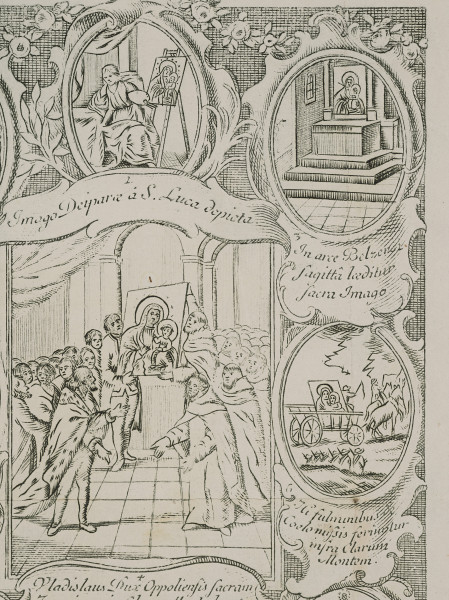 1
Imago Deiparæ à S. Luca depicta
3
In arce Belzensi
sagittâ læditur
sacra Imago
Hi fulminibus
Coelo missis feriuntur
infra Clarum
Montem.
4
Vladislaus Dux Oppoliensis sacram
8.